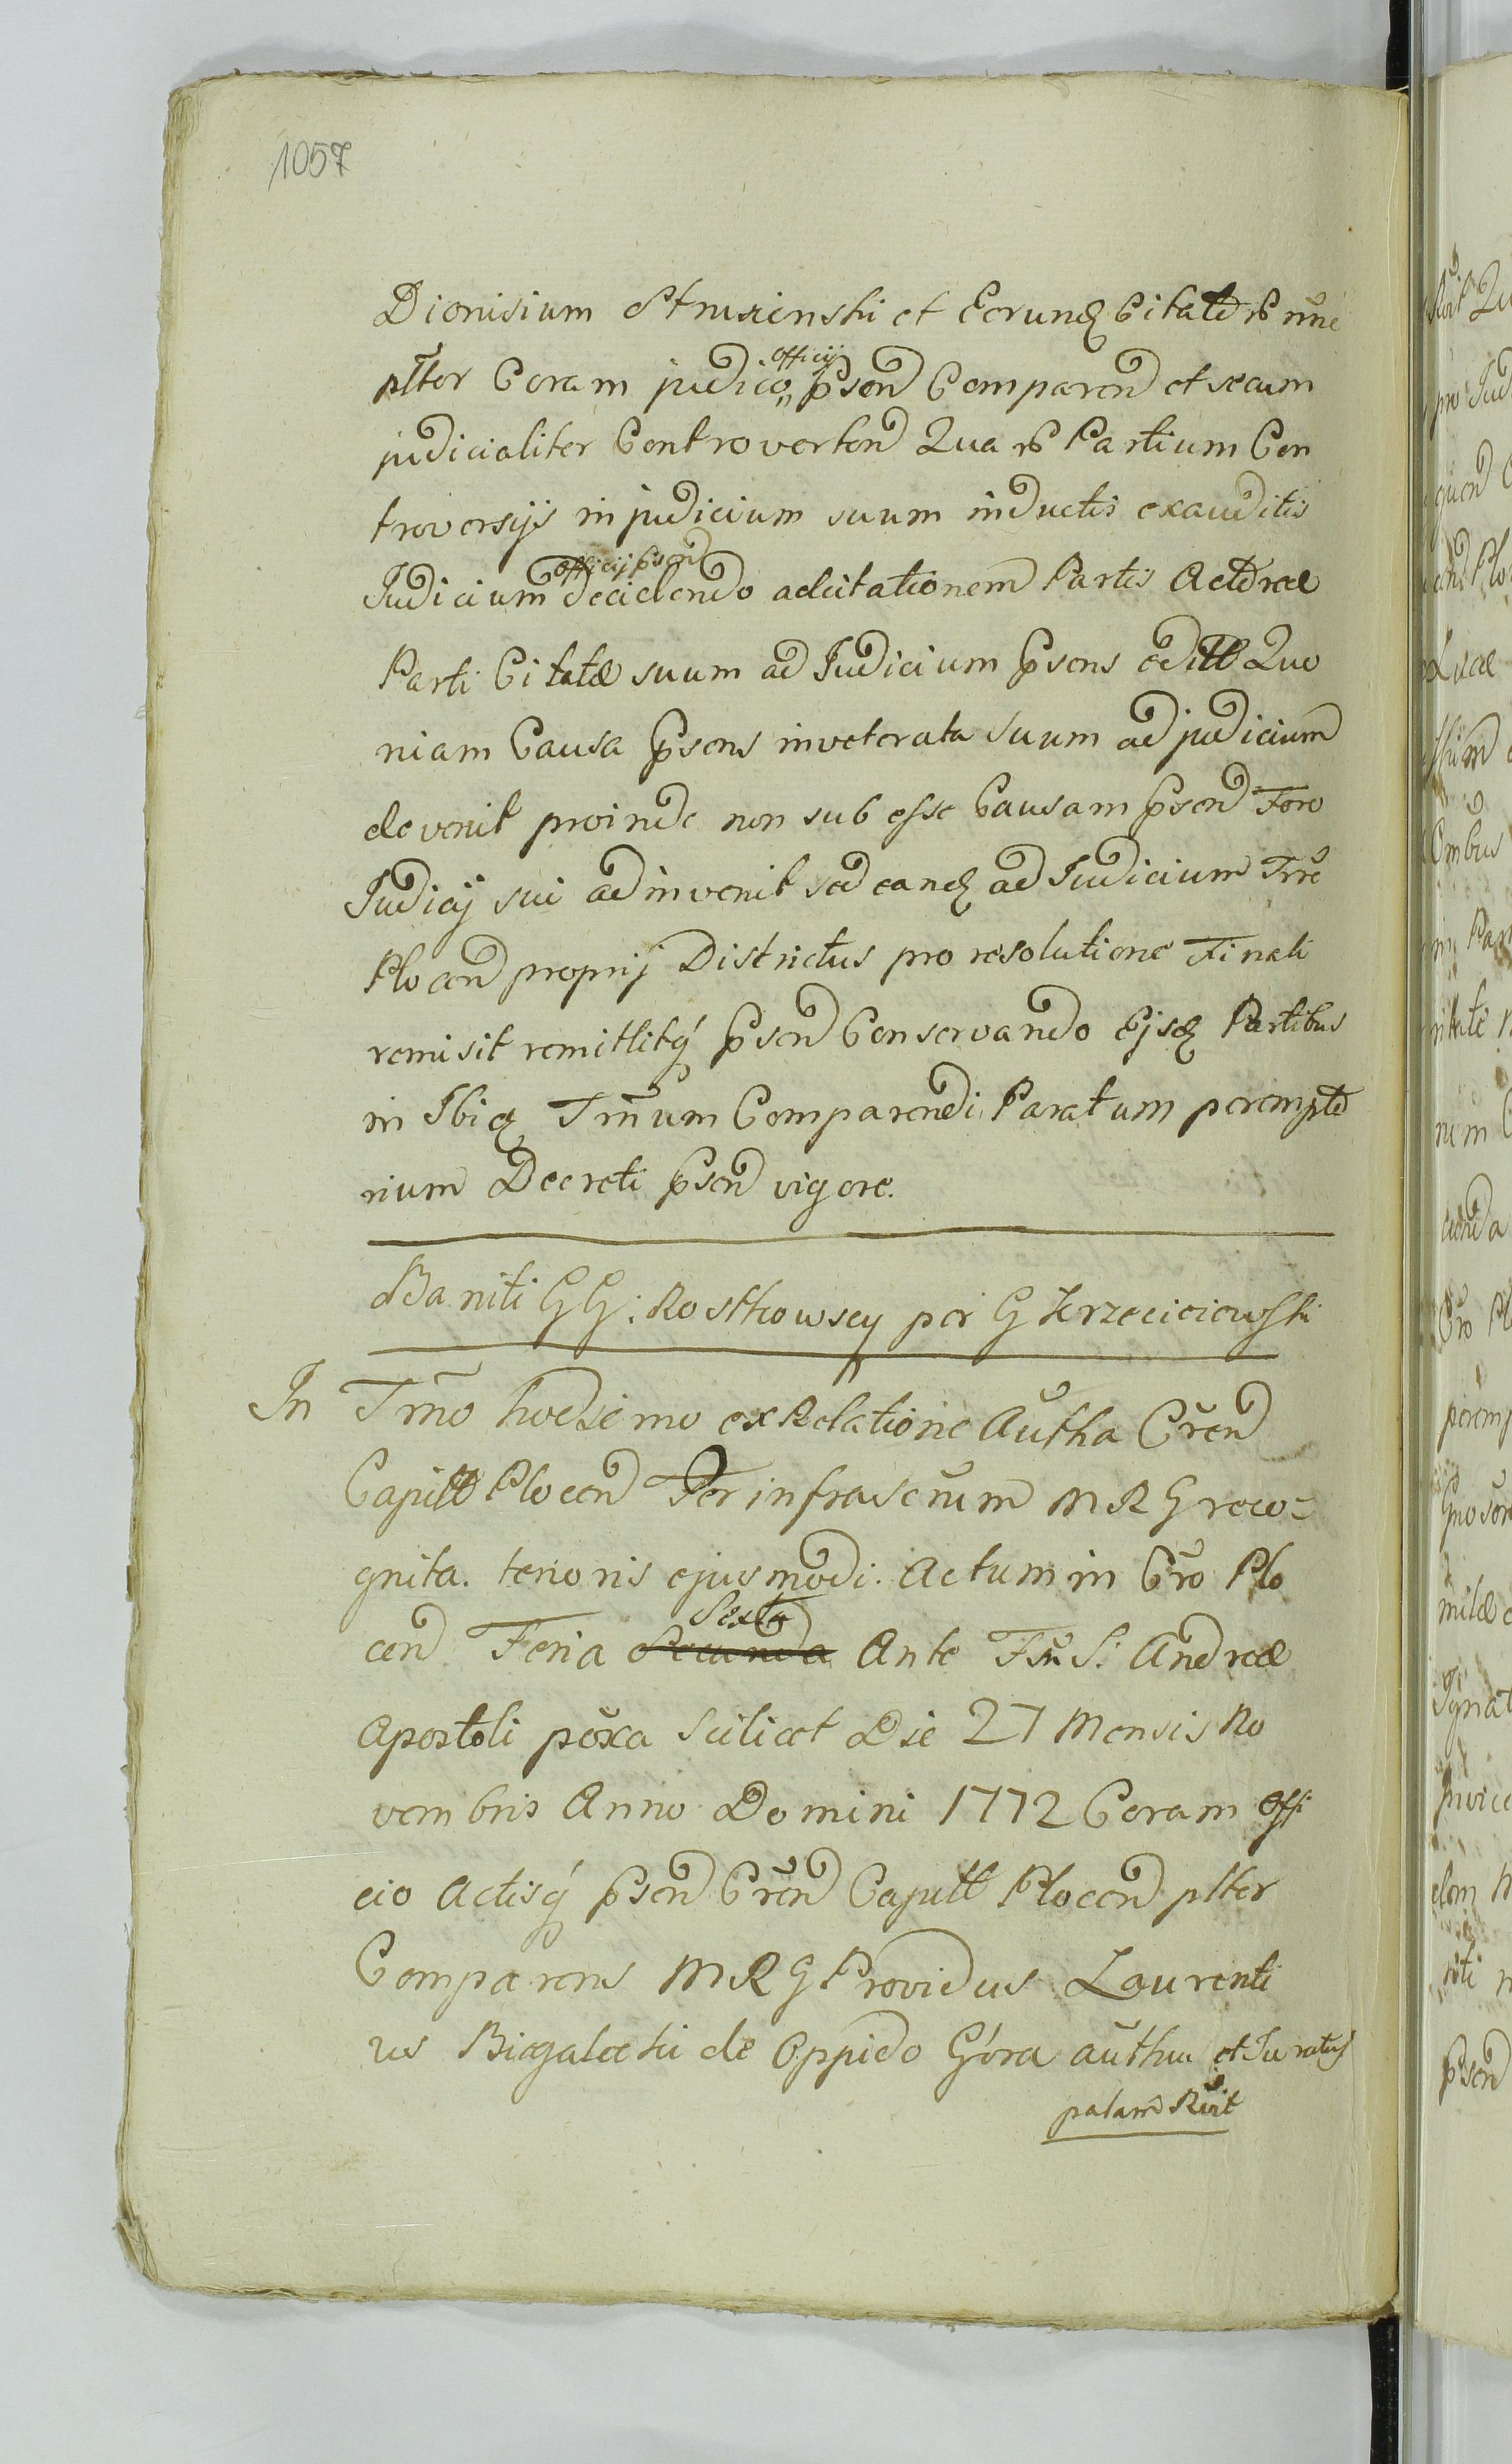 1057
Dionisium Strusienski et Eorund Citatorum nune
pltter Coram judicio officij psend Comparend et secum
judicialiter Controvertend Quarum Partium Con
troversijs in judicium suum inductis exauditis
Judicium officij psend decidendo adcitationem Partis Actoreæ
Parti Citatæ suum ad Judicium psens editt Quo
niam Causa psens inveterata suum ad judicium
devenit proinde non sub esse Causam psend Foro
Judicij sui adinvenit sed eandq ad Judicium Trre
Plocen proprij Districtus pro resolutione Finali
remisit remittitq psend Conservando Ejsdq Partibus
in Ibiq Trnum Comparendi Paratum perempto
rium Decreti psend vigore.
Baniti GG: Rostkowscy per G
In Trno hodierno ex Relatione Autha Cren
Capitt Plocen Per infrascrum MRG reco=
gnita. tenoris ejusmodi. Actum in Cro Plo
cen Feria Secunda Sexta Ante Fm S: Andreæ
Apostoli poxa scilicet Die 27 Mensis No
vembris Anno Domini 1772 Coram Offi
cio Actisq psen Cren Capitt Plocen pltter
Comparens MRG Providus Laurenti
us de Oppido Góra authus et Juratus
palam Rcit